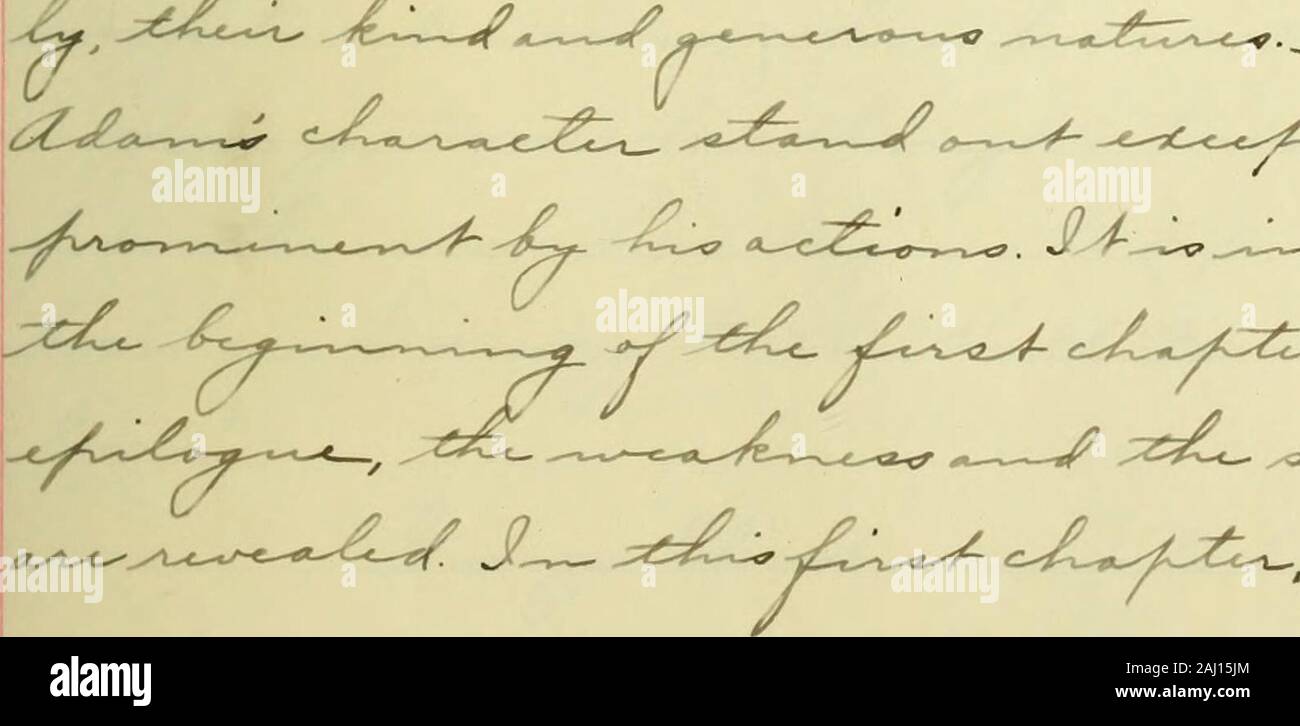 ly, their kind and generous natures.—
Adam's character stand out excep
prominent by his actions. It is in
the beginning of the first chapte
epilogue, the weakness and the s
are revealed. In this first chapter,
alamy
Image ID: 2AJ15JM
www.alamy.com